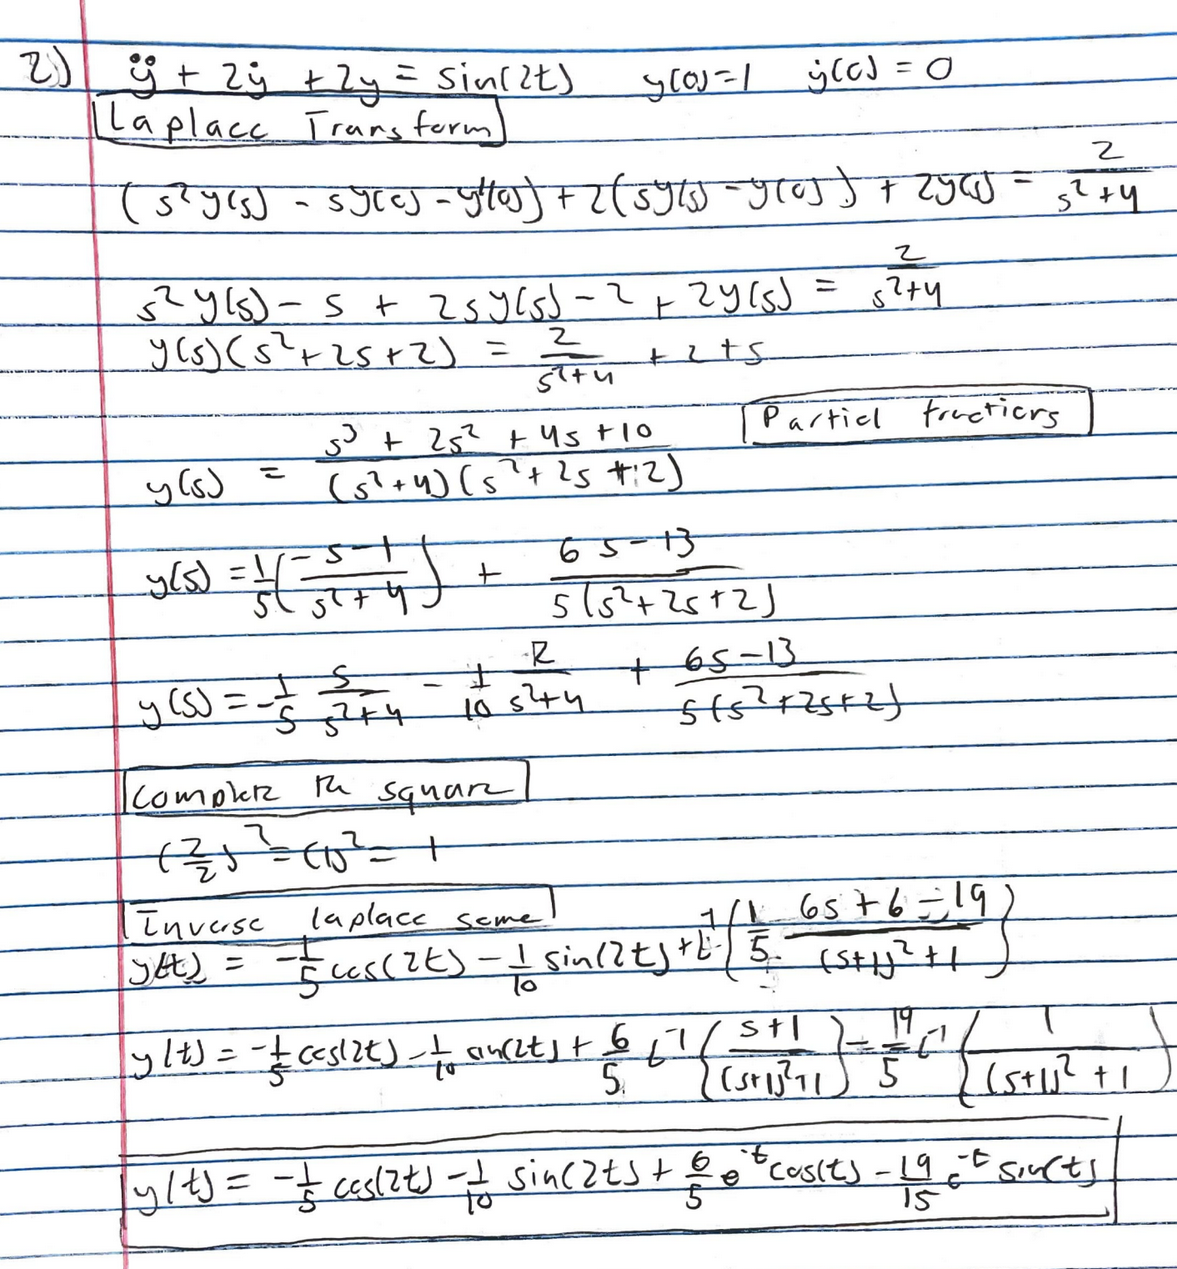 2) ÿ + 2ẏ + 2y = sin(2t) y(0)=1 ẏ(0) = 0
Laplace Transform
(s²y(s) - sy(0) - y'(0)) + 2(sy(s) - y(0)) + 2y(s) = 2/(s²+4)
s²y(s) - s + 2sy(s) - 2 + 2y(s) = 2/(s²+4)
y(s)(s²+2s+2) = 2/(s²+4) + 2 + s
Partial fractions
y(s) = (s³ + 2s² + 4s + 10)/((s²+4)(s²+2s+2))
y(s) = 1/5((-s-1)/(s²+4)) + (6s-13)/(5(s²+2s+2))
y(s) = -1/5 s/(s²+4) - 1/10 2/(s²+4) + (6s-13)/(5(s²+2s+2))
Complete the square
(2/2)² = (1)² = 1
Inverse laplace some
y(t) = -1/5 cos(2t) - 1/10 sin(2t) + L⁻¹{1/5 · (6s+6-19)/((s+1)²+1)}
y(t) = -1/5 cos(2t) - 1/10 sin(2t) + 6/5 L⁻¹{(s+1)/((s+1)²+1)} - 19/5 L⁻¹{1/((s+1)²+1)}
y(t) = -1/5 cos(2t) - 1/10 sin(2t) + 6/5 e^-t cos(t) - 19/15 e^-t sin(t)